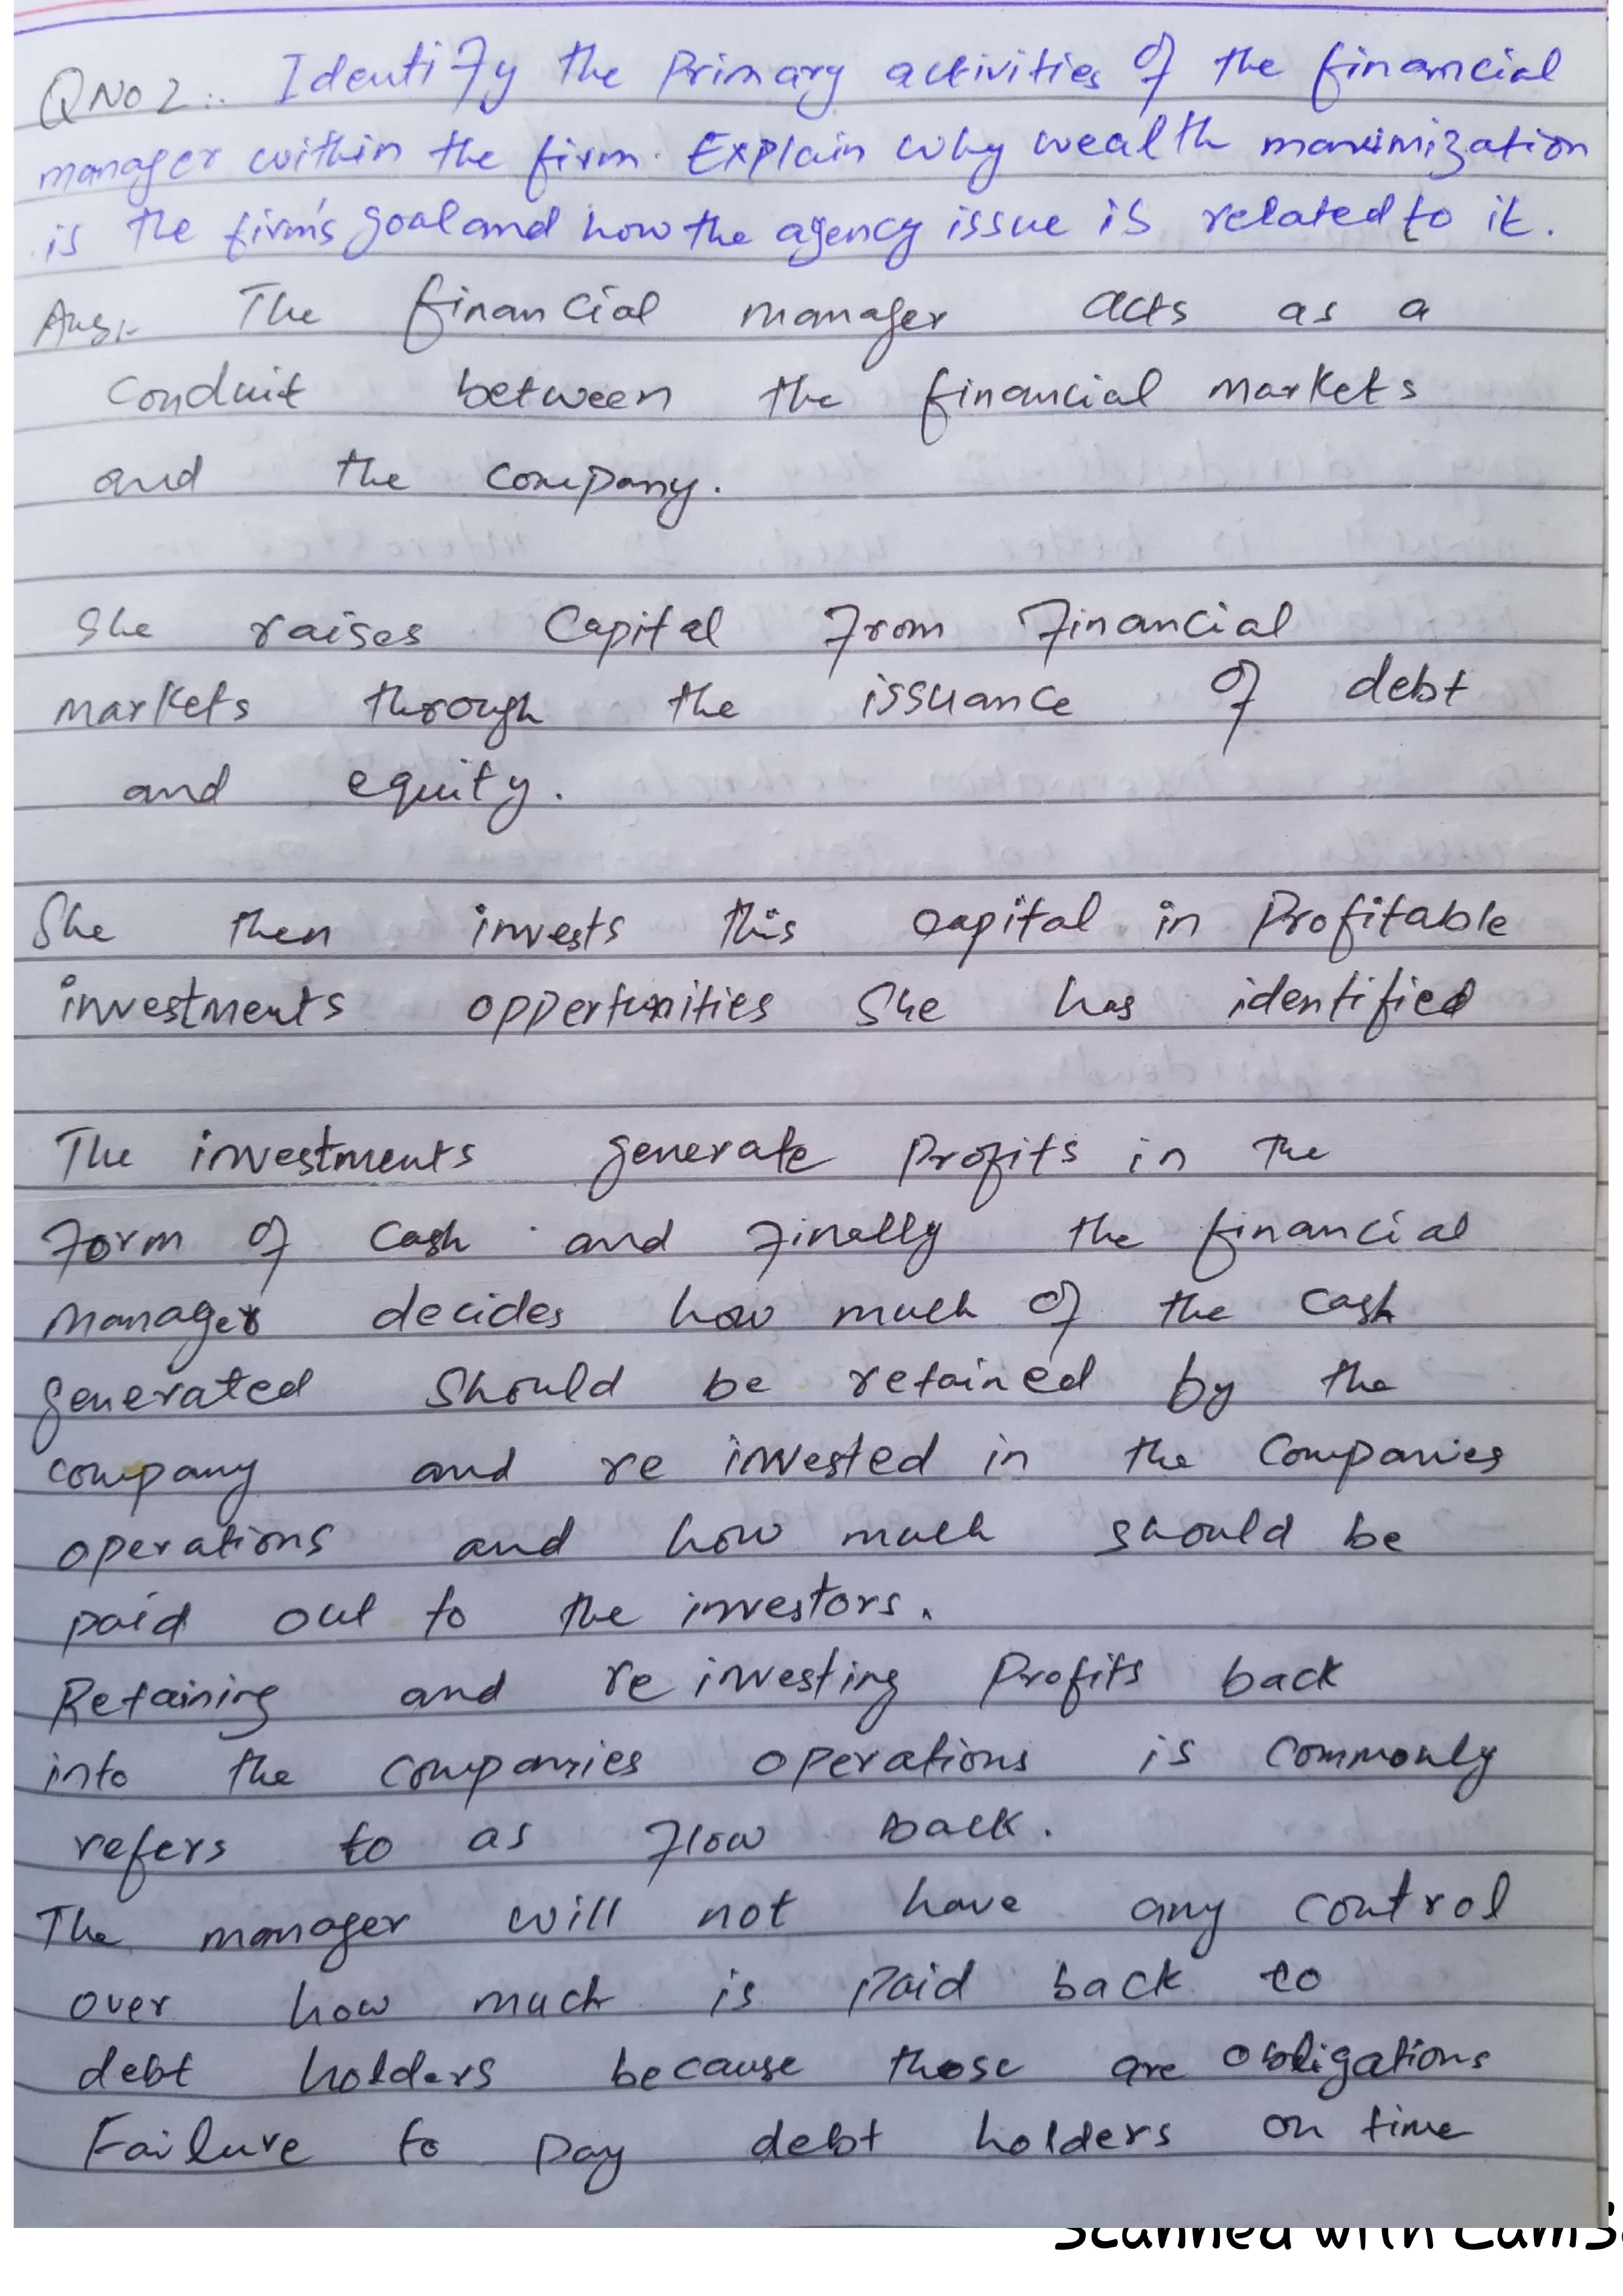 QNo2:. Identify the Primary activities of the financial
manager within the firm. Explain why wealth maximization
is the firm's goal and how the agency issue is related to it.
Ans:- The financial manager acts as a
conduit between the financial markets
and the company.
She raises Capital from financial
markets through the issuance of debt
and equity.
She then invests this capital in Profitable
investments oppertunities She has identified
The investments generate Profits in the
form of cash and finally the financial
manager decides how much of the cash
generated should be retained by the
company and re invested in the Companies
operations and how much should be
paid out to the investors.
Retaining and re investing Profits back
into the companies operations is commonly
refers to as flow back.
The manager will not have any control
over how much is paid back to
debt holders because those are obligations
Failure to pay debt holders on time
Scanned with CamS